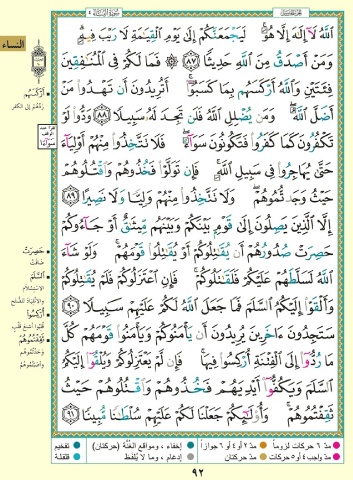 سورة النساء ٤
النساء
ٱللَّهُ لَآ إِلَٰهَ إِلَّا هُوَ ۚ لَيَجْمَعَنَّكُمْ إِلَىٰ يَوْمِ ٱلْقِيَٰمَةِ لَا رَيْبَ فِيهِ ۗ
وَمَنْ أَصْدَقُ مِنَ ٱللَّهِ حَدِيثًا ﴿٨٧﴾ ۞ فَمَا لَكُمْ فِى ٱلْمُنَٰفِقِينَ
فِئَتَيْنِ وَٱللَّهُ أَرْكَسَهُم بِمَا كَسَبُوٓا۟ ۚ أَتُرِيدُونَ أَن تَهْدُوا۟ مَنْ
أَضَلَّ ٱللَّهُ ۖ وَمَن يُضْلِلِ ٱللَّهُ فَلَن تَجِدَ لَهُۥ سَبِيلًا ﴿٨٨﴾ وَدُّوا۟ لَوْ
تَكْفُرُونَ كَمَا كَفَرُوا۟ فَتَكُونُونَ سَوَآءً ۖ فَلَا تَتَّخِذُوا۟ مِنْهُمْ أَوْلِيَآءَ
حَتَّىٰ يُهَاجِرُوا۟ فِى سَبِيلِ ٱللَّهِ ۚ فَإِن تَوَلَّوْا۟ فَخُذُوهُمْ وَٱقْتُلُوهُمْ
حَيْثُ وَجَدتُّمُوهُمْ ۖ وَلَا تَتَّخِذُوا۟ مِنْهُمْ وَلِيًّا وَلَا نَصِيرًا ﴿٨٩﴾
إِلَّا ٱلَّذِينَ يَصِلُونَ إِلَىٰ قَوْمٍۭ بَيْنَكُمْ وَبَيْنَهُم مِّيثَٰقٌ أَوْ جَآءُوكُمْ
حَصِرَتْ صُدُورُهُمْ أَن يُقَٰتِلُوكُمْ أَوْ يُقَٰتِلُوا۟ قَوْمَهُمْ ۚ وَلَوْ شَآءَ
ٱللَّهُ لَسَلَّطَهُمْ عَلَيْكُمْ فَلَقَٰتَلُوكُمْ ۚ فَإِنِ ٱعْتَزَلُوكُمْ فَلَمْ يُقَٰتِلُوكُمْ
وَأَلْقَوْا۟ إِلَيْكُمُ ٱلسَّلَمَ فَمَا جَعَلَ ٱللَّهُ لَكُمْ عَلَيْهِمْ سَبِيلًا ﴿٩٠﴾
سَتَجِدُونَ ءَاخَرِينَ يُرِيدُونَ أَن يَأْمَنُوكُمْ وَيَأْمَنُوا۟ قَوْمَهُمْ كُلَّ
مَا رُدُّوٓا۟ إِلَى ٱلْفِتْنَةِ أُرْكِسُوا۟ فِيهَا ۚ فَإِن لَّمْ يَعْتَزِلُوكُمْ وَيُلْقُوٓا۟ إِلَيْكُمُ
ٱلسَّلَمَ وَيَكُفُّوٓا۟ أَيْدِيَهُمْ فَخُذُوهُمْ وَٱقْتُلُوهُمْ حَيْثُ
ثَقِفْتُمُوهُمْ ۚ وَأُو۟لَٰٓئِكُمْ جَعَلْنَا لَكُمْ عَلَيْهِمْ سُلْطَٰنًا مُّبِينًا ﴿٩١﴾
أركسهم
ردهم إلى الكفر
حصرت
ضاقت
السلم
الاستسلام
والانقياد للصلح
أركسوا
ثقفتموهم
مد ٦ حركات لزوماً
مد ٢ أو ٤ أو ٦ جوازاً
إخفاء، ومواقع الغنة (حركتان)
تفخيم
مد واجب ٤ أو ٥ حركات
مد حركتان
إدغام، وما لا يلفظ
قلقلة
٩٢